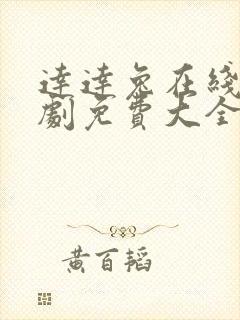 達達兔在綫
劇免費大全
黃百韜